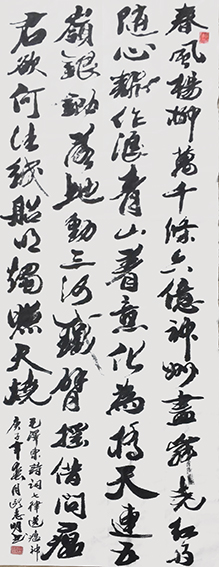 春風楊柳萬千條六億神州盡舜堯紅雨
隨心翻作浪青山著意化為橋天連五
嶺銀鋤落地動三河鐵臂搖借問瘟
君欲何往紙船明燭照天燒
毛澤東詩詞七律送瘟神
庚子年